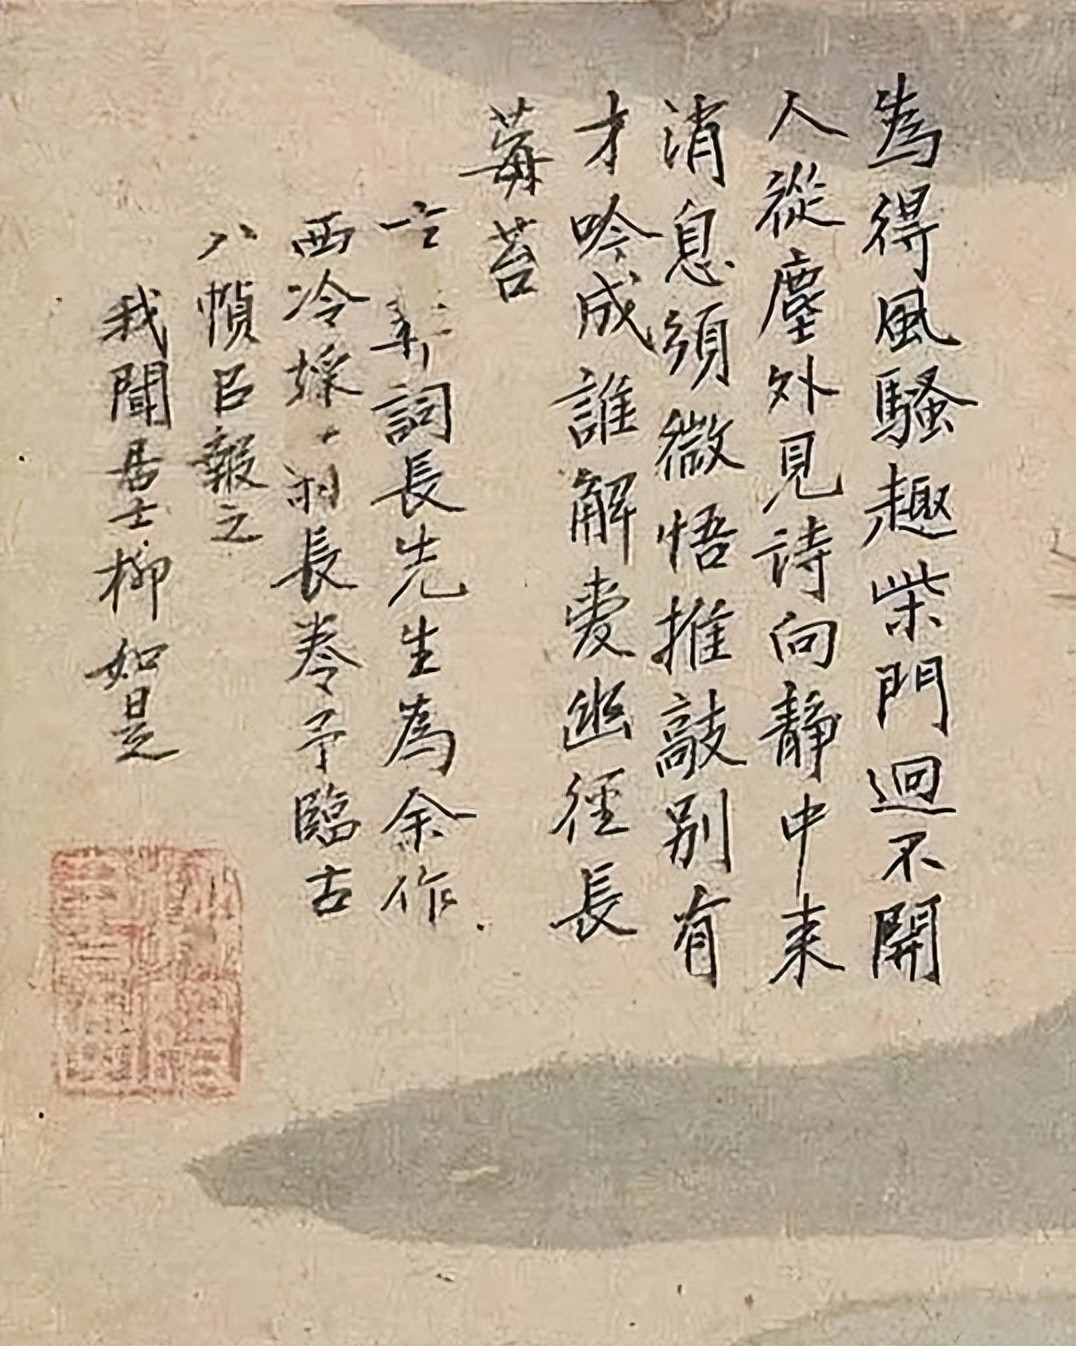 為得風騷趣柴門迥不開
人從塵外見詩向靜中来
消息須微悟推敲別有
才吟成誰解愛幽徑長
莓苔
詞長先生為余作
西泠採長卷予臨古
八幀臣報之
我聞居士柳如是